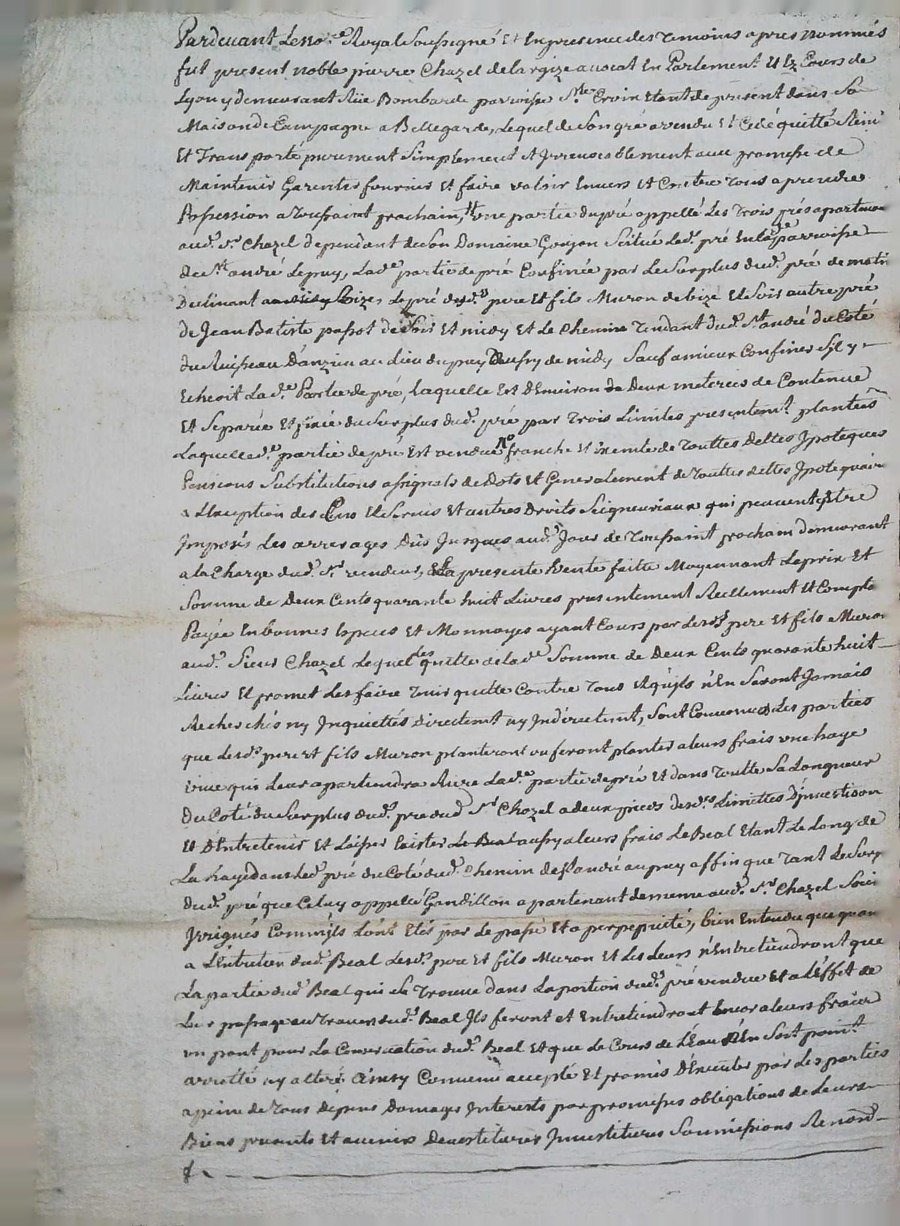 Pardevant Le no.re Royal Soussigné Et En presence des Temoins apres nommés
fut present noble pierre Chazel de la rgize avocat En Parlement Et Ez Cours de
Lyon y demeurant Rüe Bombarde paroisse S.te Croix Etant de present dans Sa
Maison de Campagne a Bellegarde, Lequel de Son gré a vendu Et Cedé quitté Remi
Et Transporté purement Simplement Et Irrevocablement avec promesse de
Maintenir Garentir fournir Et faire valoir Envers Et Contre Tous a prendre
Possession a Toussaint prochain, une partie du pré appellé Les Trois prés apartenant
aud. S.r Chazel dependant de Son Domaine Goujon Scitué Led. pré En La d.e parroisse
de S.t andré Le puy, Lad.e partie de pré Confinée par Le Surplus dud. pré de matin
Declinant a Bize, Le pré desd.s pere Et fils Muron de bize Et Soir autre pré
de Jean Batiste passot de Soir Et midy Et Le Chemin Tendant dud. S.t andré du Coté
du Ruisseau Danzieu au lieu du puy aussy de midy Sauf a mieux Confiner S'il y
Echeoit La d.e Partie de pré, Laquelle Est D'Environ de Deux meterées de Contenue
Et Separée Et prise du Surplus dud. pré par Trois Limites presentem.t plantées
Laquelle d.e partie de pré Est vendue franche Et Exemte de Touttes Dettes Ipoteques
Pensions Substitutions assignats de Dots Et Generalement de Touttes dettes Ipotequaire
a L'Exception des Cens Et Servis Et autres Droits Seigneuriaux qui peuvent Etre
Imposés Les arrerages Düs Jusques aud. Jour de Toussaint prochain demeurant
a la Charge dud. S.r vendeur, Et La presente Vente faitte Moyennant Le prix Et
Somme de Deux Cents quarante huit Livres presentement Reellement Et Compta
Payée En bonnes Especes Et Monnoyes ayant Cours par Lesd.s pere Et fils Muron
aud. Sieur Chazel Lequel Les quitte de La d.e Somme de Deux Cents quarante huit
Livres Et promet Les faire Tenir quitte Contre Tous Et qu'ils n'En Seront Jamais
Recherchés ny Inquiettés directem.t ny Indirectem.t, Sont Convenues Les parties
que Lesd.s pere et fils Muron planteront ou feront planter a leurs frais une haye
vive qui Leur apartiendra Riere Lad.e partie de pré Et dans Toutte Sa Longueur
Du Coté du Surplus dud. pré aud. S.r Chazel a deux pieds desd.s Limittes D'investison
Et D'Entretenir Et Laisser Exister Le Beal aussy a leurs frais Le Beal Etant Le Long de
La haye dans Led. pré du Coté dud. Chemin de S.t andré au puy affin que Tant Le Surp
dud. pré que Celuy appellé Gandillon apartenant de meme aud. S.r Chazel Soient
Irrigués Comm'ils L'ont Etés par Le passé Et a perpepuité, bien Entendu que quan
a L'Entretien dud. Beal Lesd.s pere et fils Muron Et Les Leurs n'Entretiendront que
La partie dud. Beal qui Se Trouve dans La portion dud. pré vendue Et a L'Effet de
Leur passage au Travers dud. Beal Ils feront et Entretiendront Encor a leurs fraix
un pont pour La Conservation dud. Beal Et que Le Cours de L'Eau n'En Soit point
arretté ny alteré Ainsy Convenu accepté Et promis D'Executer par Les parties
a peine de Tous depens Domages Interests par promesses obligations de Leurs
Biens presents Et avenirs Devestitures Investitures Soumissions Renond